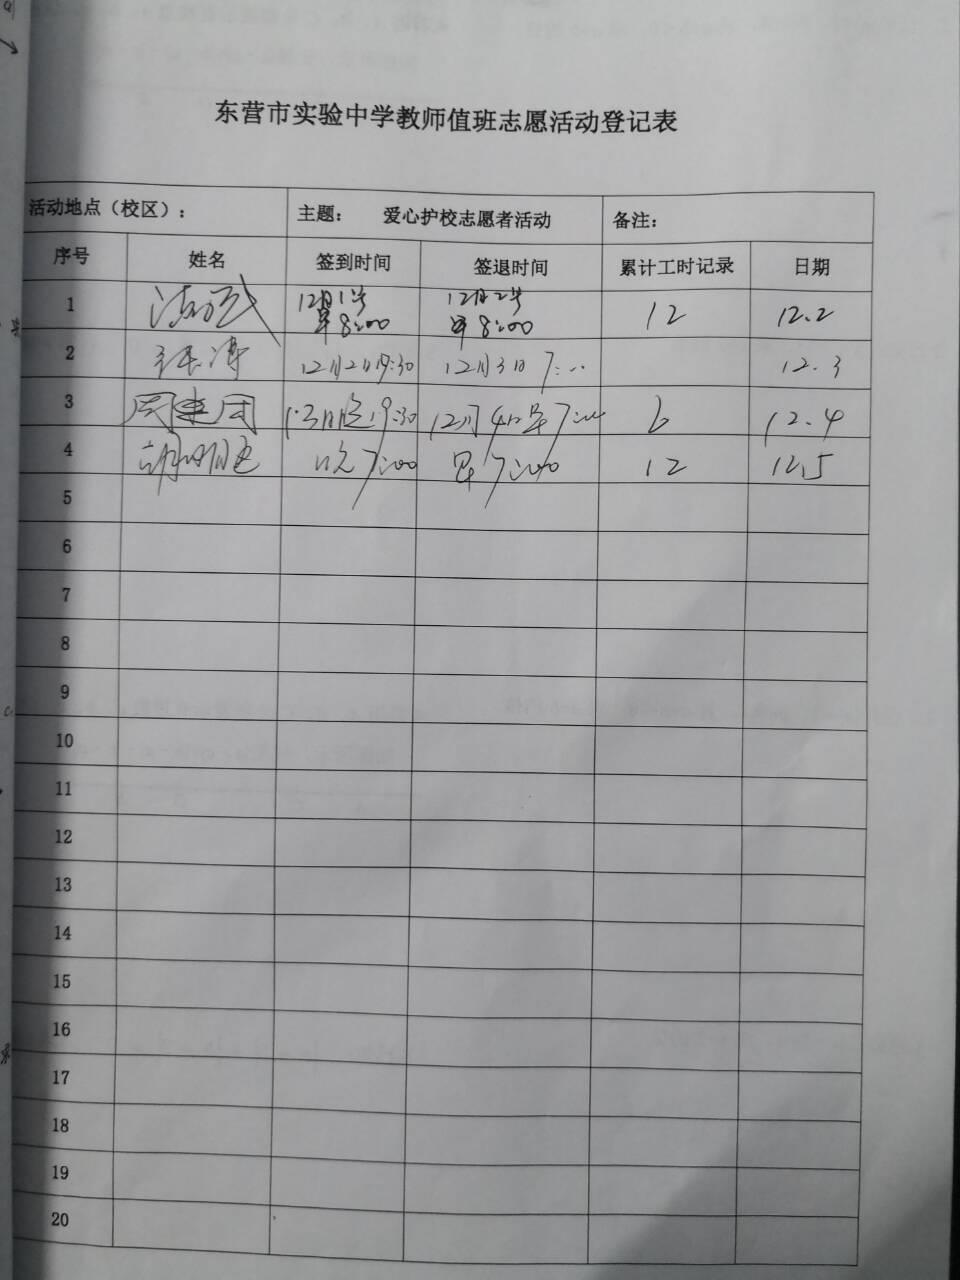 东营市实验中学教师值班志愿活动登记表
活动地点（校区）： 主题： 爱心护校志愿者活动 备注：
序号 姓名 签到时间 签退时间 累计工时记录 日期
1 12月1号 早8:00 12月2号 早8:00 12 12.2
2 12月2日19:30 12月3日 7: 12.3
3 周建国 3日晚19:30 12月4日早7:00 6 12.4
4 胡明 晚7:00 早7:00 12 12.5
5
6
7
8
9
10
11
12
13
14
15
16
17
18
19
20